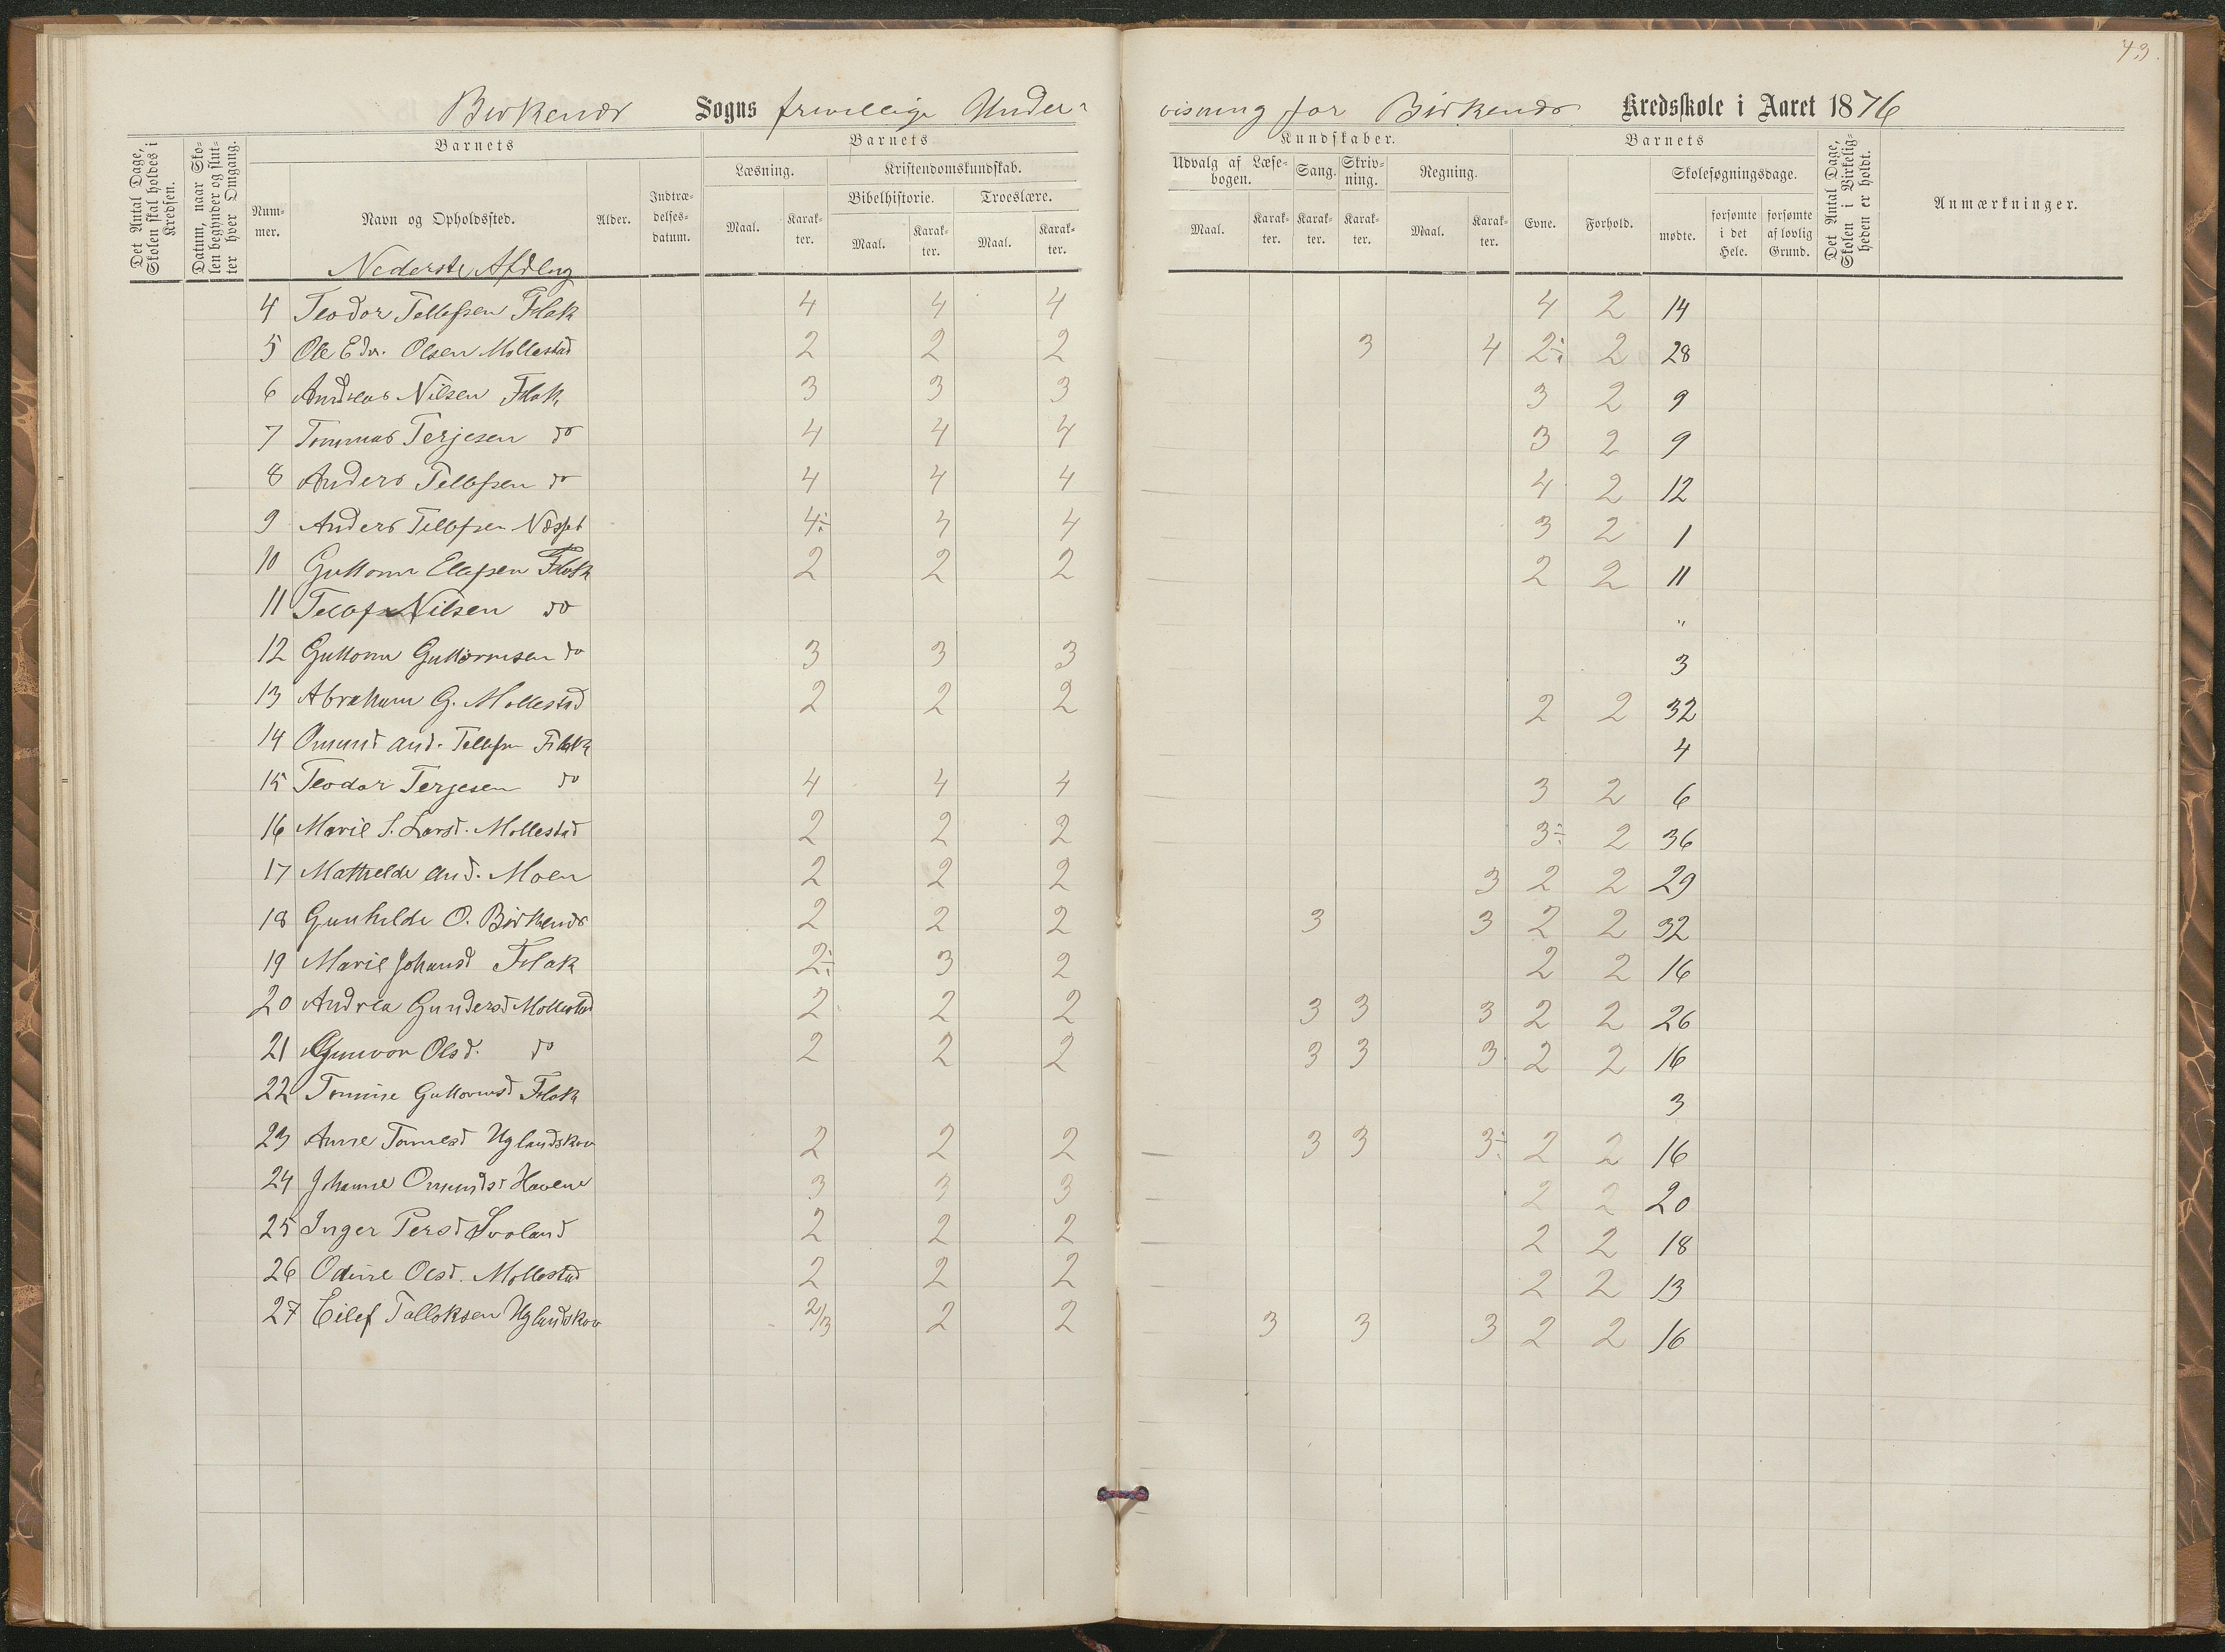 43.
Birkenæs Sogns frivillige Under-visning for Birkenæs Kredsskole i Aaret 1876
Det Antal Dage, Skolen skal holdes i Kredsen.
Datum, naar Skolen begynder og slutter hver Omgang.
Barnets
Nummer.
Navn og Opholdssted.
Alder.
Indtrædelsesdatum.
Barnets
Læsning.
Maal.
Karakter.
Kristendomskundskab.
Bibelhistorie.
Maal.
Karakter.
Troeslære.
Maal.
Karakter.
Kundskaber.
Udvalg af Læsebogen.
Maal.
Karakter.
Sang.
Karakter.
Skrivning.
Karakter.
Regning.
Maal.
Karakter.
Barnets
Evne.
Forhold.
Skolesøgningsdage.
mødte.
forsømte i det Hele.
forsømte af lovlig Grund.
Det Antal Dage, Skolen i Virkeligheden er holdt.
Anmærkninger.
Nederste Afdlng
4 Teodor Tellefsen Flak 4 4 4 4 2 14
5 Ole Edv. Olsen Mollestad 2 2 2 3 4 2÷ 2 28
6 Andreas Nilsen Flak 3 3 3 3 2 9
7 Tommas Terjesen do 4 4 4 3 2 9
8 Anders Tellefsen do 4 4 4 4 2 12
9 Anders Tellefsen Næsset 4÷ 4 4 3 2 1
10 Guttorm Ellefsen Flak 2 2 2 2 2 11
11 Tellef Nilsen do "
12 Guttorm Guttormsen do 3 3 3 3
13 Abraham G. Mollestad 2 2 2 2 2 32
14 Omund And. Tellefsen Flak 4
15 Teodor Terjesen do 4 4 4 3 2 6
16 Marie S. Larsd. Mollestad 2 2 2 3÷ 2 36
17 Mathilde And. Moen 2 2 2 3 2 2 29
18 Gunhilde O. Birkenæs 2 2 2 3 3 2 2 32
19 Marie Johansd Flak 2÷ 3 2 2 2 16
20 Andrea Gundersd Mollestad 2 2 2 3 3 3 2 2 26
21 Gunvor Olsd. do 2 2 2 3 3 3 2 2 16
22 Tomine Guttormsd Flak 3
23 Anne Tomesd Uglandskov 2 2 2 3 3 3÷ 2 2 16
24 Johanne Omundsd Havene 3 3 3 2 2 20
25 Inger Persd Svaland 2 2 2 2 2 18
26 Odine Olsd. Mollestad 2 2 2 2 2 13
27 Eilef Talloksen Uglandskov 2/3 2 2 3 3 3 2 2 16